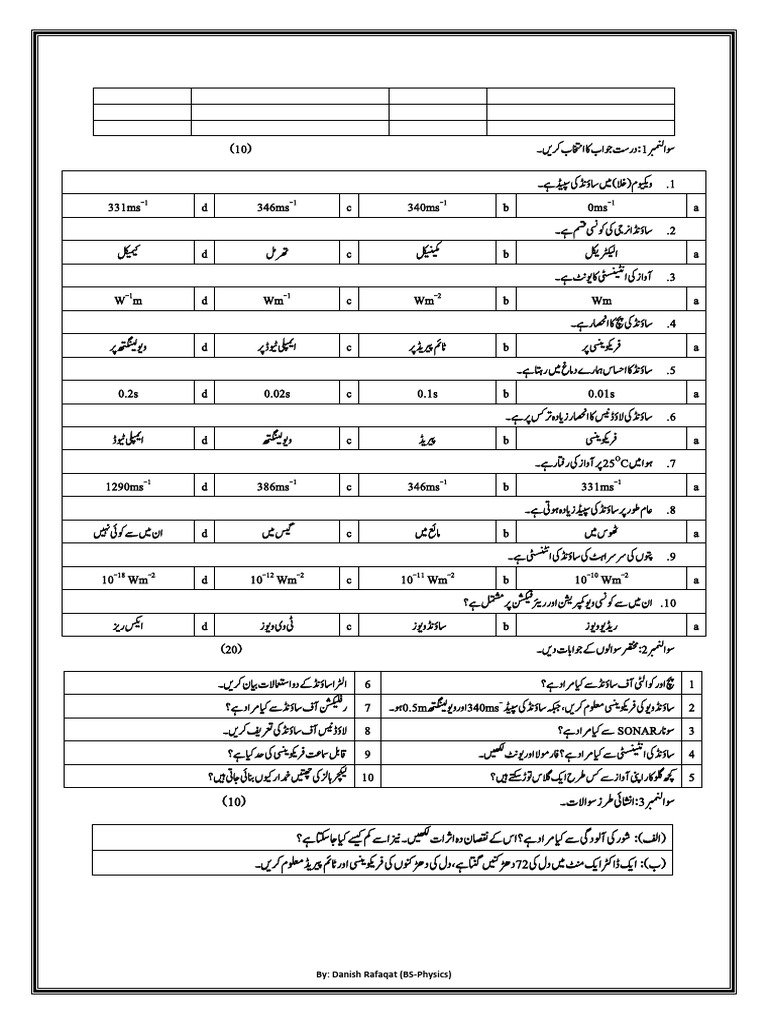 سوالنمبر 1: درست جواب کا انتخاب کریں۔ (10)
1. ویکیوم (خلا) میں ساؤنڈ کی سپیڈ ہے۔
a 0ms⁻¹ b 340ms⁻¹ c 346ms⁻¹ d 331ms⁻¹
2. ساؤنڈ انرجی کی کونسی قسم ہے۔
a الیکٹریکل b مکینیکل c تھرمل d کیمیکل
3. آواز کی انٹینسٹی کا یونٹ ہے۔
a Wm b Wm⁻² c Wm⁻¹ d W⁻¹m
4. ساؤنڈ کی پچ کا انحصار ہے۔
a فریکوینسی پر b ٹائم پیریڈ پر c ایمپلی ٹیوڈ پر d ویولینگتھ پر
5. ساؤنڈ کا احساس ہمارے دماغ میں رہتا ہے۔
a 0.01s b 0.1s c 0.02s d 0.2s
6. ساؤنڈ کی لاؤڈنیس کا انحصار زیادہ تر کس پر ہے۔
a فریکوینسی b پیریڈ c ویولینگتھ d ایمپلی ٹیوڈ
7. ہوا میں 25⁰C پر آواز کی رفتار ہے۔
a 331ms⁻¹ b 346ms⁻¹ c 386ms⁻¹ d 1290ms⁻¹
8. عام طور پر ساؤنڈ کی سپیڈ زیادہ ہوتی ہے۔
a ٹھوس میں b مائع میں c گیس میں d ان میں سے کوئی نہیں
9. پتوں کی سرسراہٹ کی ساؤنڈ کی انٹنسٹی ہے۔
a 10⁻¹⁰ Wm⁻² b 10⁻¹¹ Wm⁻² c 10⁻¹² Wm⁻² d 10⁻¹⁸ Wm⁻²
10. ان میں سے کونسی ویو کمپریشن اور ریئر فیکشن پر مشتمل ہے؟
a ریڈیو ویوز b ساؤنڈ ویوز c ٹی وی ویوز d ایکس ریز
سوالنمبر 2: مختصر سوالوں کے جوابات دیں۔ (20)
1 پچ اور کوالٹی آف ساؤنڈ سے کیا مراد ہے؟ 6 الٹراساؤنڈ کے دو استعمالات بیان کریں۔
2 ساؤنڈ ویو کی فریکوینسی معلوم کریں، جبکہ ساؤنڈ کی سپیڈ 340ms⁻ اور ویولینگتھ 0.5m ہو۔ 7 رفلیکشن آف ساؤنڈ سے کیا مراد ہے؟
3 سونار SONAR سے کیا مراد ہے؟ 8 لاؤڈنیس آف ساؤنڈ کی تعریف کریں۔
4 ساؤنڈ کی انٹینسٹی سے کیا مراد ہے؟ فارمولا اور یونٹ لکھیں۔ 9 قابل سماعت فریکوینسی کی حد کیا ہے؟
5 کچھ گلوکار اپنی آواز سے کس طرح ایک گلاس توڑ سکتے ہیں؟ 10 لیکچر ہالز کی چھتیں خمدار کیوں بنائی جاتی ہیں؟
سوالنمبر 3: انشائی طرز سوالات۔ (10)
(الف): شور کی آلودگی سے کیا مراد ہے؟ اس کے نقصان دہ اثرات لکھیں۔ نیز اسے کم کیسے کیا جا سکتا ہے؟
(ب): ایک ڈاکٹر ایک منٹ میں دل کی 72 دھڑکنیں گنتا ہے، دل کی دھڑکنوں کی فریکوینسی اور ٹائم پیریڈ معلوم کریں۔
By: Danish Rafaqat (BS-Physics)